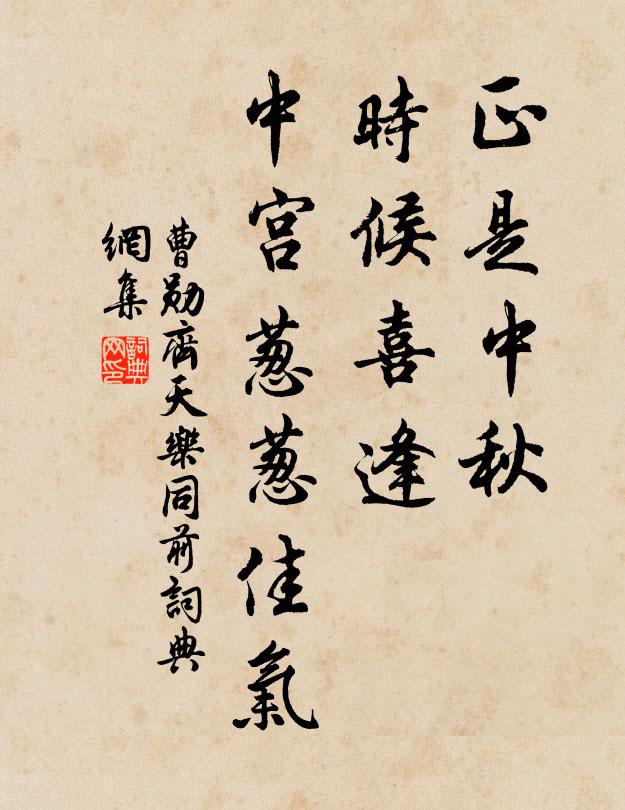 正是中秋
時候喜逢
中宮葱葱佳氣
曹勛齊天樂同前詞典
網集
詞典
网印